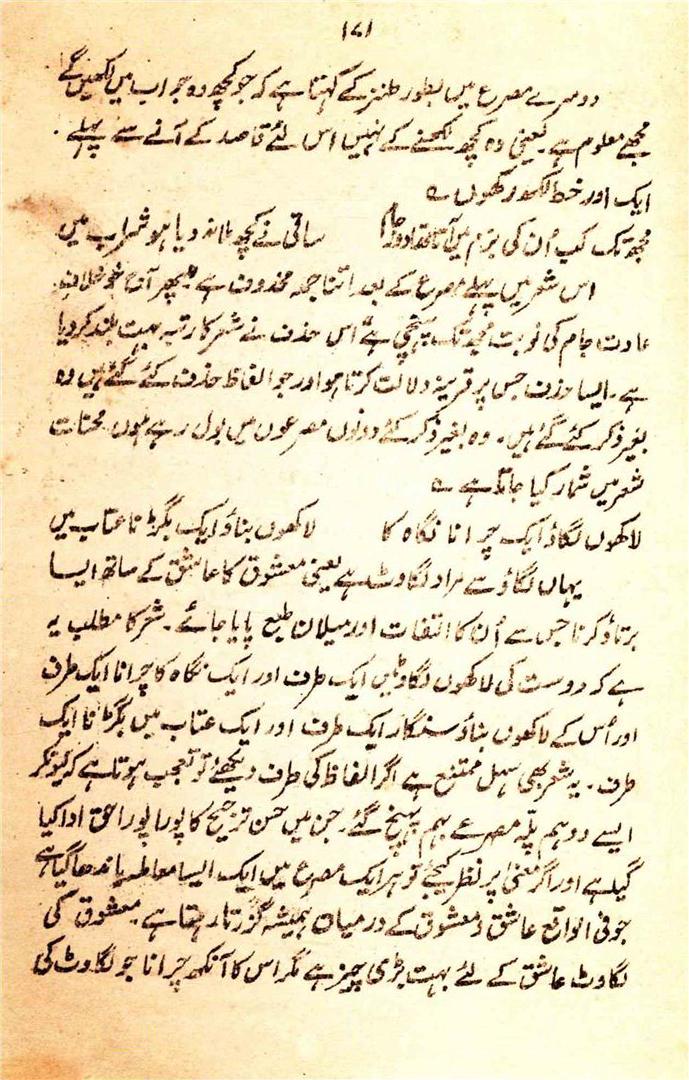 ۱۷۱
دوسرے مصرع میں بطور طنز کے کہتا ہے کہ جو کچھ وہ جواب میں لکھیں گے
مجھے معلوم ہے یعنی وہ کچھ لکھنے کے نہیں اس لئے قاصد کے آنے سے پہلے
ایک اور خط لکھ رکھوں ے
مجھ تک کب اُن کی بزم میں آتا تھا دور جام ساقی نے کچھ ملا نہ دیا ہو شراب میں
اس شعر میں پہلے مصرع کے بعد اتنا جملہ محذوف ہے پھر آج جو خلاف
عادت جام کی نوبت مجھ تک پہنچی ہے اس حذف نے شعر کا رتبہ بہت بلند کر دیا
ہے۔ ایسا حذف جس پر قرینہ دلالت کرتا ہو اور جو الفاظ حذف کئے گئے ہیں وہ
بغیر ذکر کئے گئے ہیں۔ وہ بغیر ذکر کئے دونوں مصرعوں میں بول رہے ہوں محسنات
شعر میں شمار کیا جاتا ہے ے
لاکھوں لگاؤ ایک چرانا نگاہ کا لاکھوں بناؤ ایک بگڑنا عتاب میں
یہاں لگاؤ سے مراد لگاوٹ ہے یعنی معشوق کا عاشق کے ساتھ ایسا
برتاؤ کرنا جس سے اُن کا التفات اور میلان طبع پایا جائے۔ شعر کا مطلب یہ
ہے کہ دوست کی لاکھوں لگاوٹیں ایک طرف اور ایک نگاہ کا چرانا ایک طرف
اور اُس کے لاکھوں بناؤ سنگار ایک طرف اور ایک عتاب میں بگڑنا ایک
طرف۔ یہ شعر بھی سہل ممتنع ہے اگر الفاظ کی طرف دیکھئے تو تعجب ہوتا ہے کہ کیونکر
ایسے دو ہم پلّہ مصرعے بہم پہنچ گئے۔ جن میں حسن ترجیح کا پورا پورا حق ادا کیا
گیا ہے اور اگر معنیٰ پر نظر کیجئے تو ہر ایک مصرع میں ایک ایسا معاملہ باندھا گیا ہے
جو فی الواقع عاشق و معشوق کے درمیان ہمیشہ گزرتا رہتا ہے۔ معشوق کی
لگاوٹ عاشق کے لئے بہت بڑی چیز ہے مگر اس کا آنکھ چرانا جو لگاوٹ کی